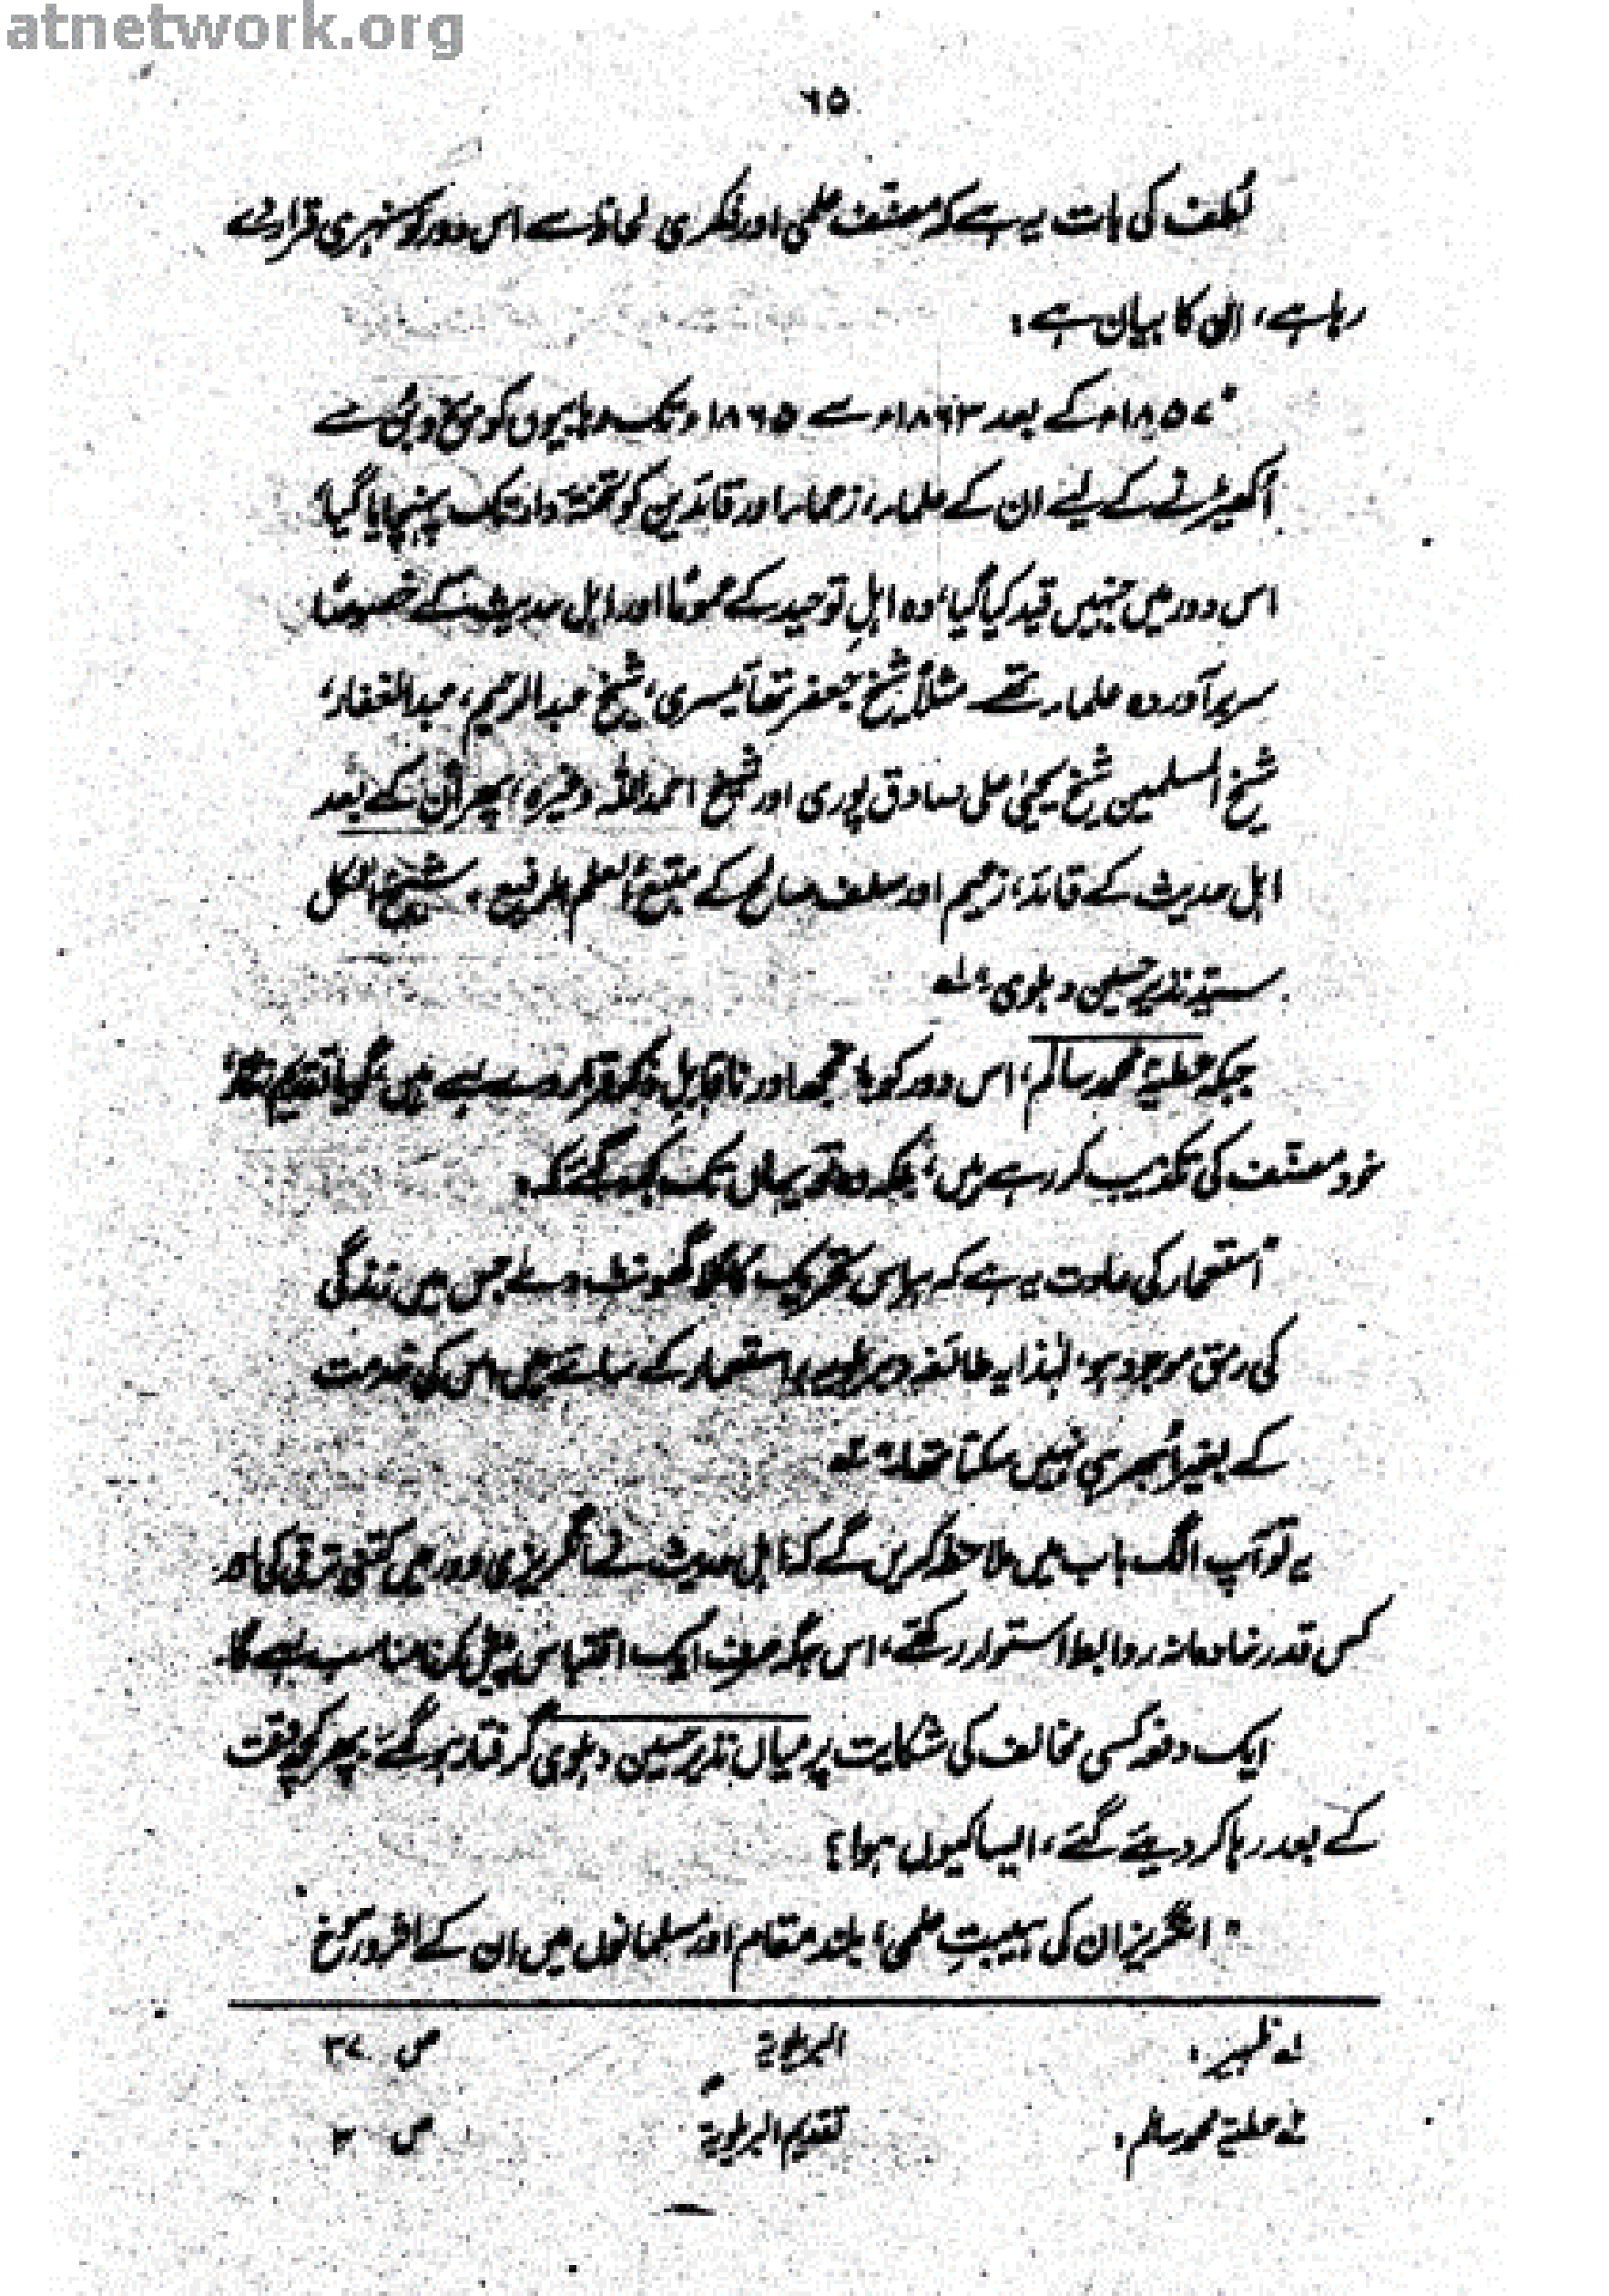 atnetwork.org
٦٥
لطف کی بات یہ ہے کہ مصنف علمی اور فکری لحاظ سے اس دور کو سنہری قرار دے
رہا ہے، ان کا بیان ہے:
"۱۸۵۷ء کے بعد ۱۸۶۳ء سے ۱۸۶۵ء تک وہابیوں کو بیخ و بن سے
اکھیڑنے کے لیے ان کے علماء، زعماء اور قائدین کو تختۂ دار تک پہنچایا گیا،
اس دور میں جنہیں قید کیا گیا، وہ اہلِ توحید کے عموماً اور اہل حدیث کے خصوصاً
سربرآوردہ علماء تھے۔ مثلاً شیخ جعفر تھانیسری، شیخ عبدالرحیم، عبدالغفار،
شیخ المسلمین شیخ یحییٰ علی صادق پوری اور شیخ احمداللہ وغیرہ، پھر ان کے بعد
اہل حدیث کے قائد، زعیم اور سلف صالح کے متبع العلم الرفیع، شیخ الکل
سید نذیر حسین دہلوی" لے
جبکہ عطیہ محمد سالم، اس دور کو بانجھ اور ناقابلِ ذکر قرار دے رہے ہیں، گویا تقدیم نگار
خود مصنف کی تکذیب کر رہے ہیں، بلکہ وہ تو یہاں تک کہہ گئے کہ:
"استعمار کی عادت یہ ہے کہ ہر اس تحریک کا گلا گھونٹ دے جس میں زندگی
کی رمق موجود ہو، لہٰذا یہ طائفہ (بریلویہ) استعمار کے سائے میں اس کی خدمت
کے بغیر ابھر ہی نہیں سکتا تھا۔" ٢ے
یہ تو آپ الگ باب میں ملاحظہ کریں گے کہ اہل حدیث نے انگریزی دور میں کتنی ترقی کی اور
کس قدر خادمانہ روابط استوار رکھے، اس جگہ صرف ایک اقتباس پیش کرنا مناسب رہے گا۔
ایک دفعہ کسی مخالف کی شکایت پر میاں نذیر حسین دہلوی گرفتار ہو گئے، پھر کچھ وقت
کے بعد رہا کر دیئے گئے، ایسا کیوں ہوا؟
"انگریز ان کی ہیبتِ علمی، بلند مقام اور مسلمانوں میں ان کے اثر و رسوخ
لے ظہیر: البریلویۃ ص ۳۷
٢ے عطیہ محمد سالم: تقدیم البریلویۃ ص